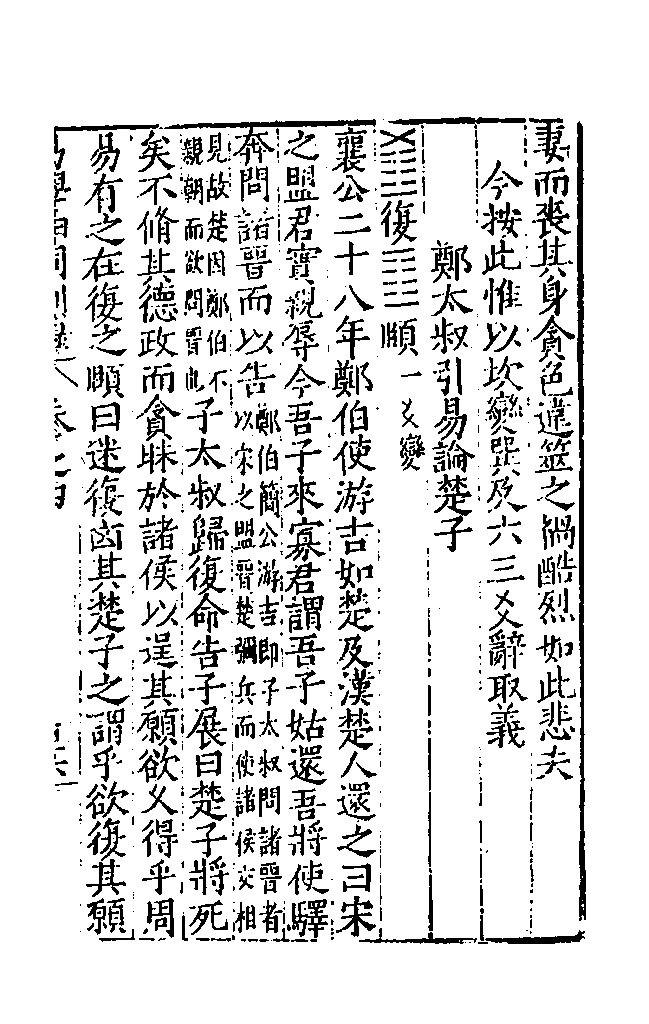 妻而喪其身貪色違筮之禍酷烈如此悲夫
今按此惟以坎變巽及六三爻辭取義
鄭太叔引易論楚子
復頤一爻變
襄公二十八年鄭伯使游吉如楚及漢楚人還之曰宋
之盟君實親辱今吾子來寡君謂吾子姑還吾將使驛
奔問諸晉而以告鄭伯簡公游吉即子太叔問諸晉者以宋之盟晉楚彌兵而使諸侯交相
見故楚因鄭伯不親朝而欲問晉也子太叔歸復命告子展曰楚子將死
矣不脩其德政而貪昧於諸侯以逞其願欲乆得乎周
易有之在復之頤曰迷復凶其楚子之謂乎欲復其願
易學
卷之四